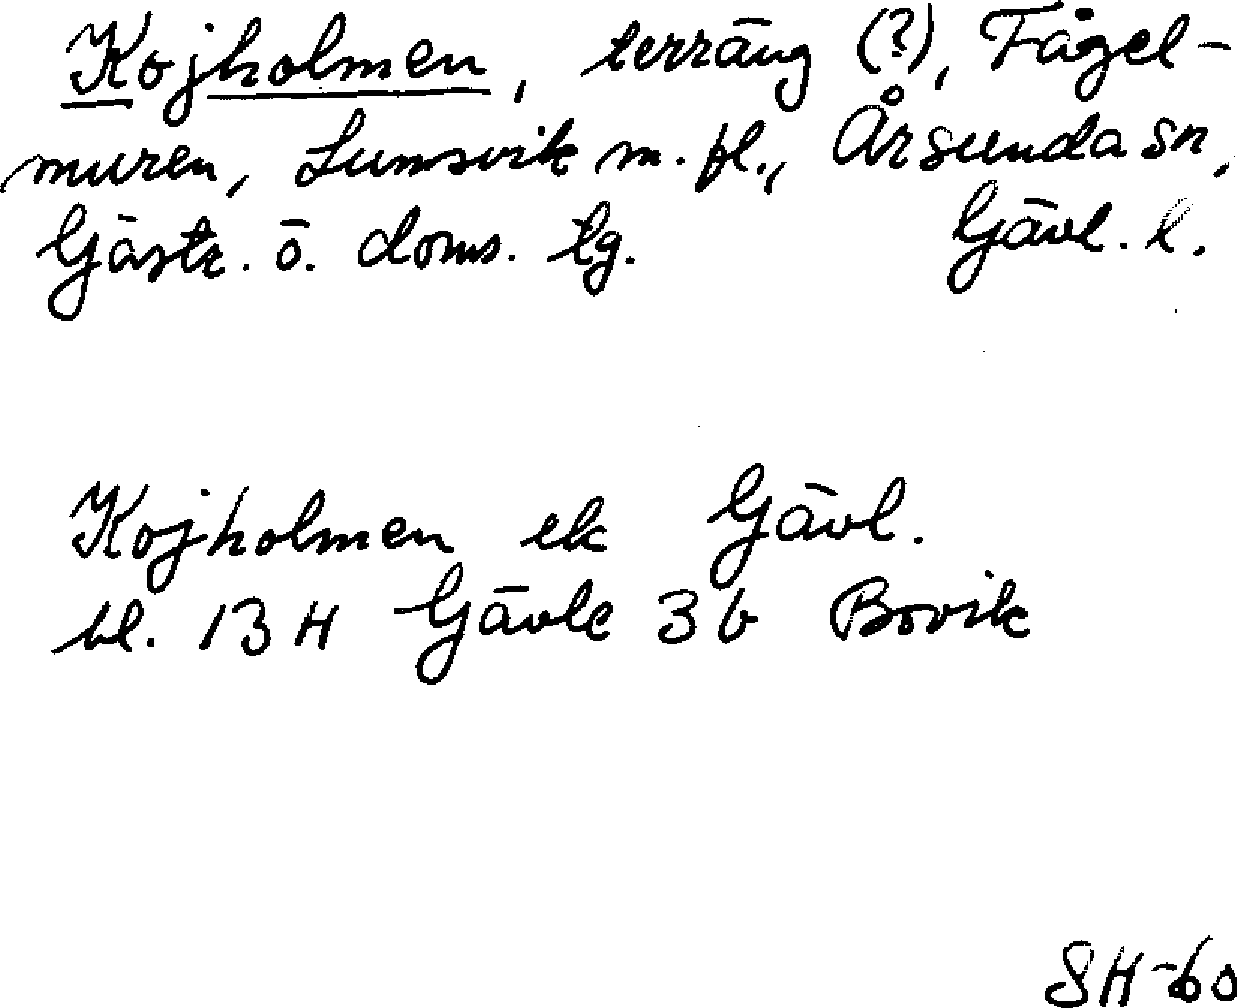 Kojholmen, terräng (?), Fågel-
muren, Lumsvik m. fl., Årsunda sn,
Gästr. ö. doms. lg. Gävl. l.
Kojholmen ek Gävl.
bl. 13 H Gävle 3b Bovik
SH-60